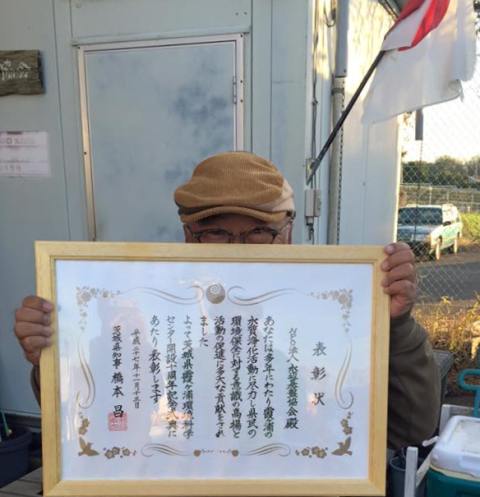 表彰状
協会殿
あなたは多年にわたり霞ヶ浦の
水質浄化活動に尽力し県民の
環境保全に対する意識の高揚と
活動の促進に多大な貢献をされ
ました
よって茨城県霞ヶ浦環境科学
センター開設十周年記念式典に
あたり表彰します
平成二十七年十一月
茨城県知事 橋本昌